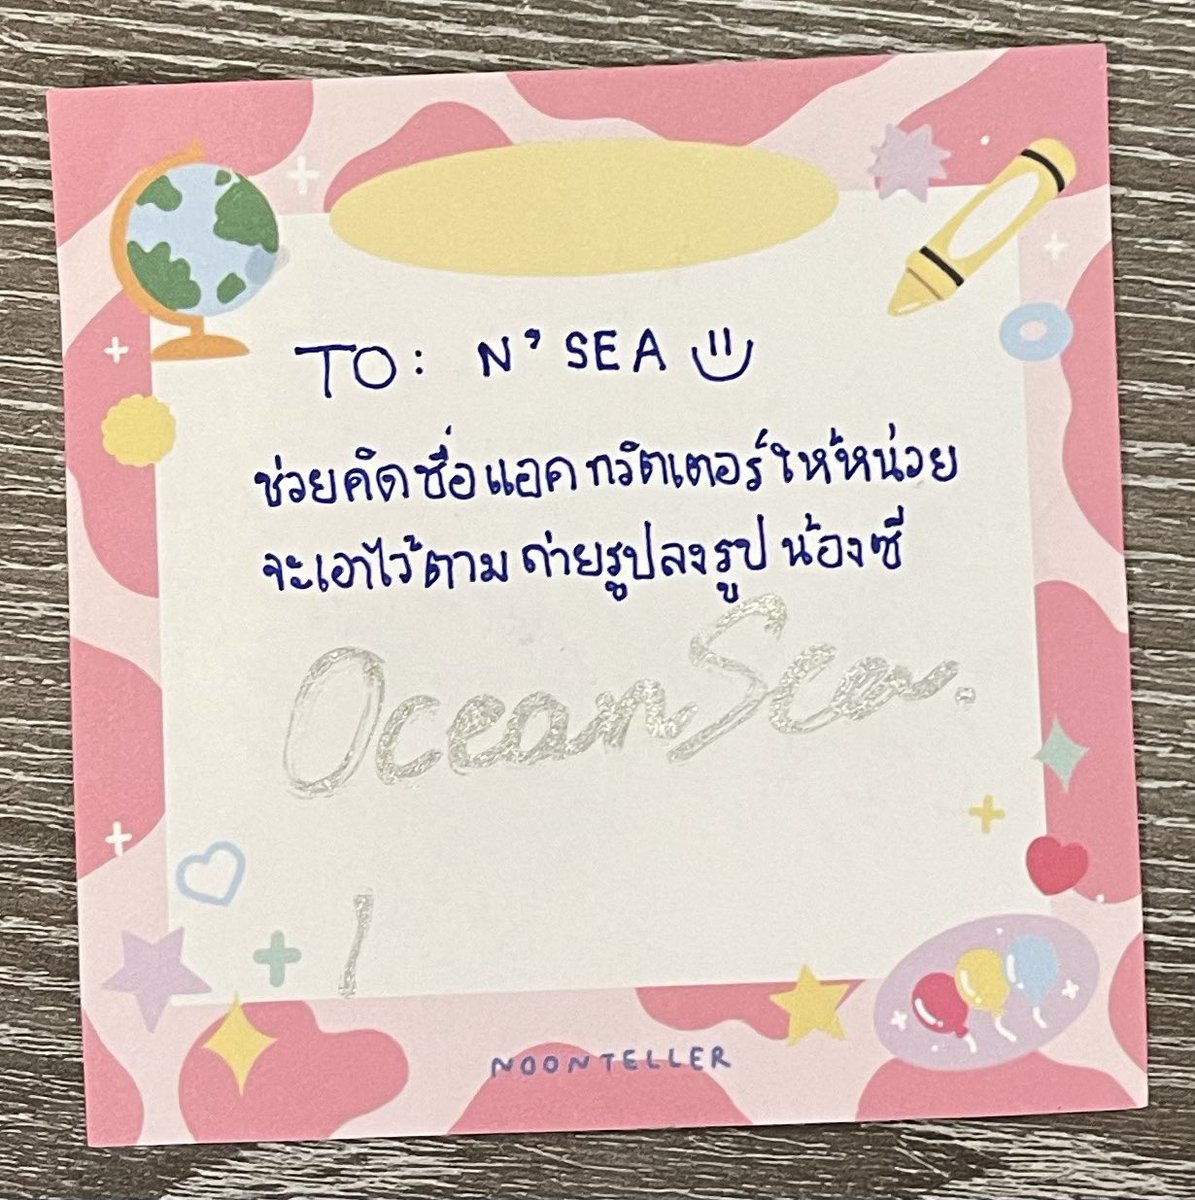 TO: N' SEA
ช่วยคิดชื่อแอคทวิตเตอร์ให้หน่อย
จะเอาไว้ตามถ่ายรูปลงรูป น้องซี
OceanSea.
NOONTELLER